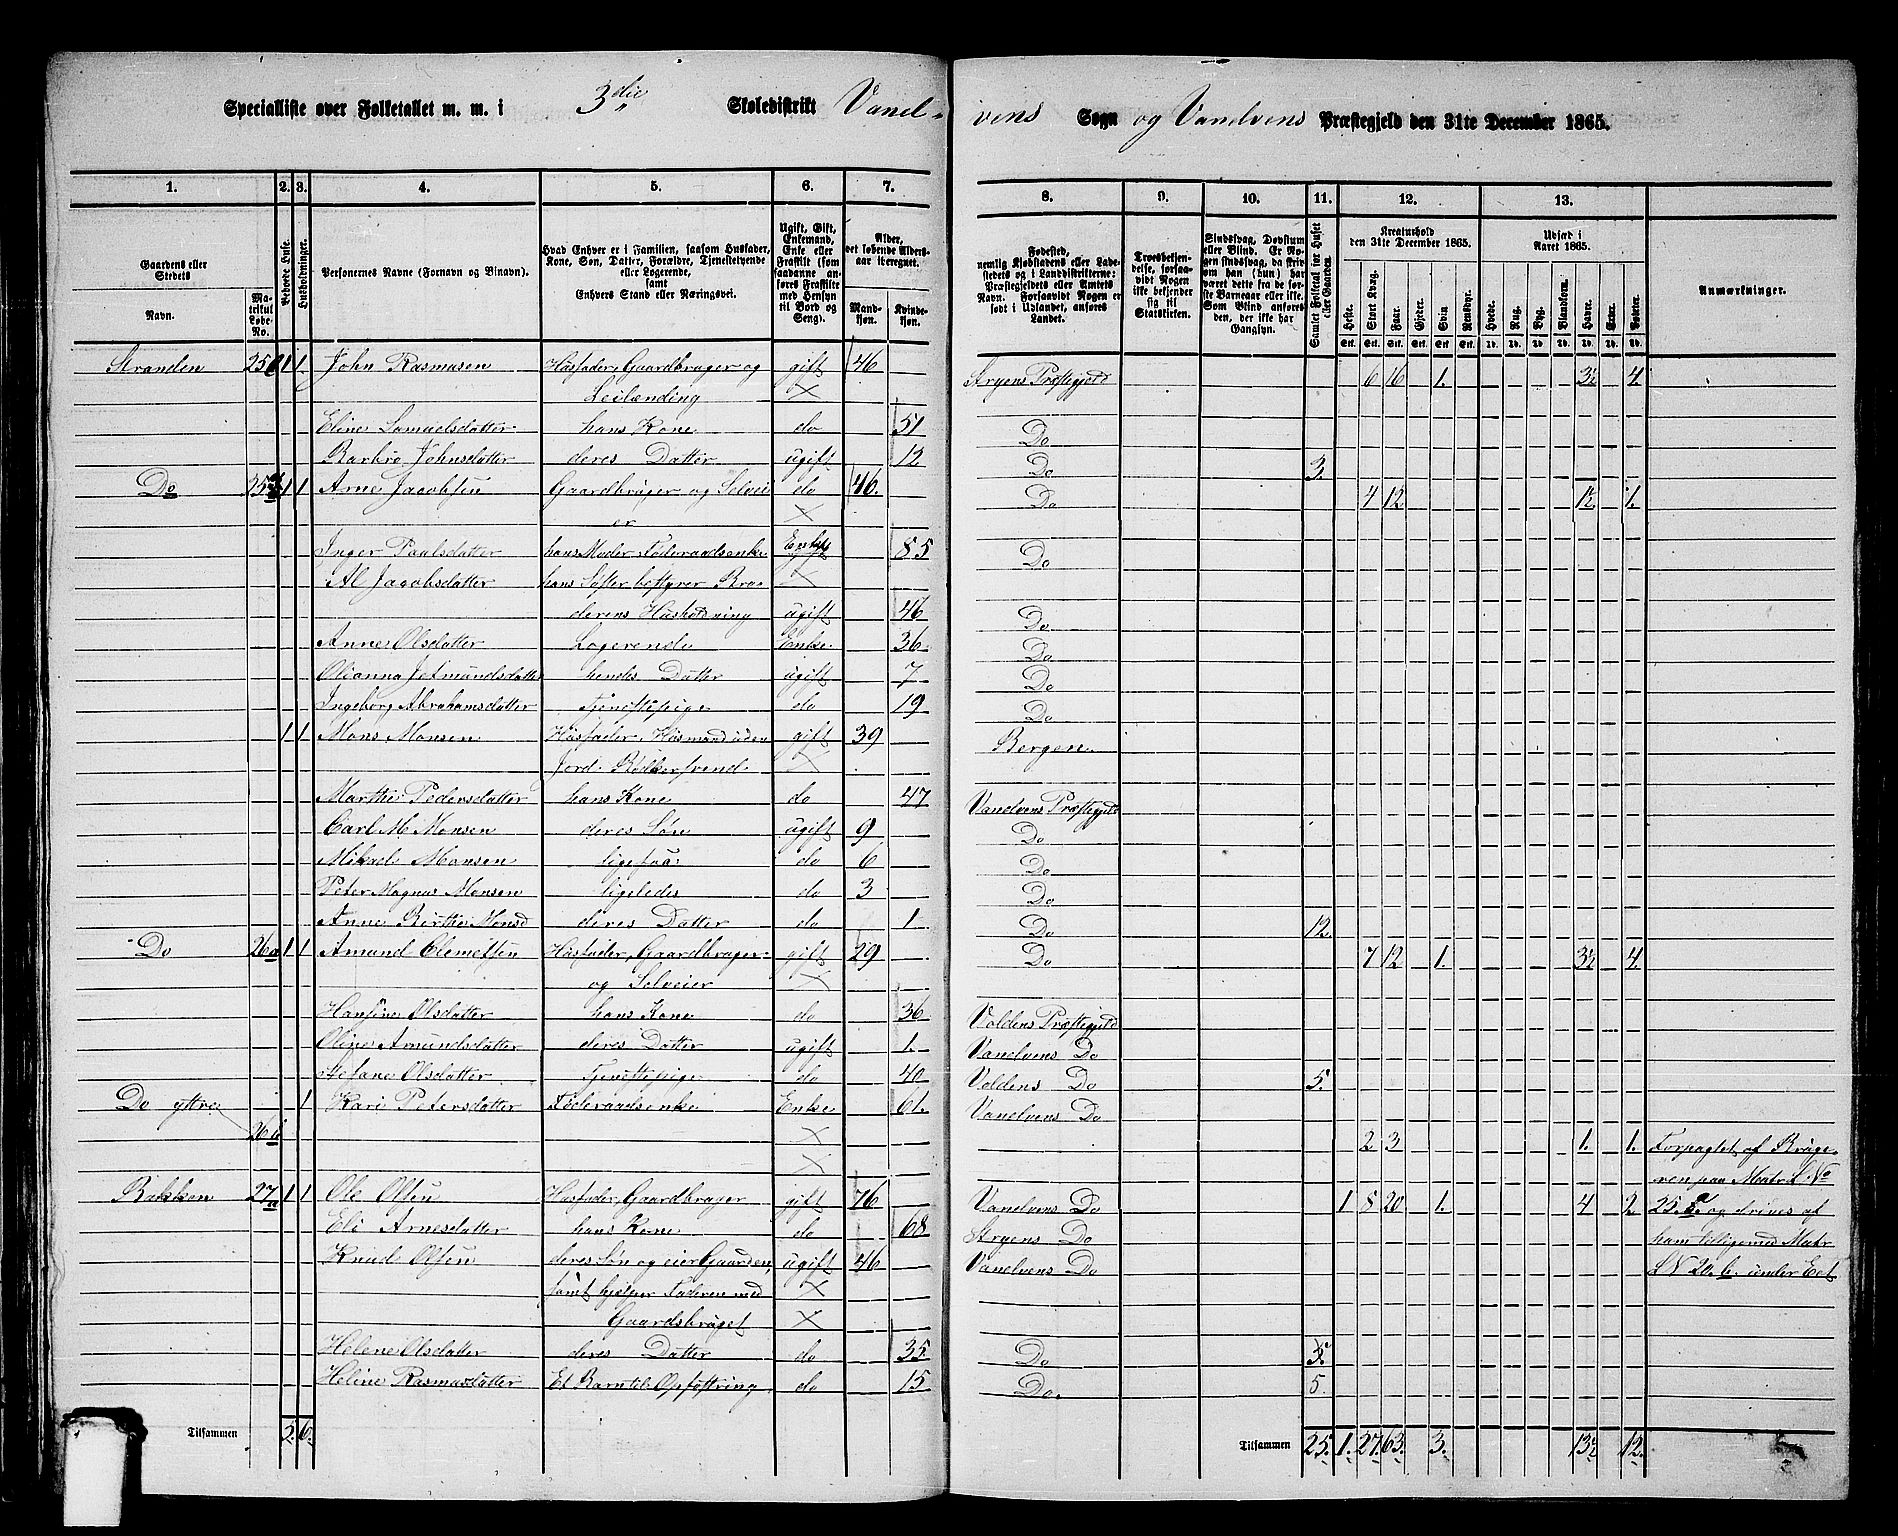 Specialliste over Folketallet m. m. i 3die Skoledistrikt Vanel-
vens Sogn og Vanelvens Præstegjeld den 31te December 1865.
1. 2. 3. 4. 5. 6. 7. 8. 9. 10. 11. 12. 13.
Gaardens eller Stedets
Navn.
Matrikul Løbe-No.
Beboede Huse.
Husholdninger.
Personernes Navne (Fornavn og Binavn).
Hvad Enhver er i Familien, saasom Husfader, Kone, Søn, Datter, Forældre, Tjenestetyende eller Logerende, samt Enhvers Stand eller Næringsvei.
Ugift, Gift, Enkemand, Enke eller Fraskilt (som saadanne anføres Fraskilte med Hensyn til Bord og Seng).
Alder, det løbende Alders-aar iberegnet.
Mandkjøn. Kvindekjøn.
Fødested, nemlig Kjøbstadens eller Ladestedets og i Landdistrikterne: Præstegjeldets eller Amtets Navn. Forsaavidt Nogen er født i Udlandet, anføres Landet.
Troesbekjendelse, forsaavidt Nogen ikke bekjender sig til Statskirken.
Sindssvag, Døvstum eller Blind. Er Nogen sindssvag, da skrives om han (hun) har været dette fra de første Barneaar eller ikke. Som Blind anføres den, der ikke har Gangsyn.
Samlet Folketal for Huset eller Gaarden.
Kreaturhold den 31te December 1865.
Heste. Stort Kvæg. Faar. Gjeder. Svin. Rensdyr.
Udsæd i Aaret 1865.
Hvede. Rug. Byg. Blandkorn. Havre. Erter. Poteter.
Anmærkninger.
Stranden 25 1 1 John Rasmusen Husfader, Gaardbruger og gift 46 Stryens Præstegjeld 6 16 1. 3½ 4.
Leilænding
Eline Samuelsdatter hans Kone do 51 Do
Barbro Johnsdatter deres Datter ugift 12 Do 3.
Do 25 1 1 Arne Jacobsen Gaardbruger og Selvei do 46. Do 4 12 1½ 1.
er
Inger Paulsdatter hans Moder, Føderaadsenke Enke 85 Do
Al Jacobsdatter hans Søster bestyrer Bro
derens Husholdning ugift 46 Do
Anne Olsdatter Logerende Enke 36 Do
Olianna Jetmundsdatter hendes Datter ugift 7 Do
Ingeborg Abrahamsdatter Tjenestepige do 19 Do
1 1 Mons Monsen Husfader, Husmand uden gift 39 Bergen
Jord. Bødkersvend
Marthe Pedersdatter hans Kone do 47 Vanelvens Præstegjeld
Carl M Monsen deres Søn ugift 9 Do
Mikael Monsen ligesaa do 6 Do
Peter Magnus Monsen ligeledes do 3 Do
Anne Berthe Monsd deres Datter do 1. Do 12.
Do 26a 1 1 Amund Clemetsen Husfader, Gaardbruger gift 29 Do 7 12 1. 3½ 4.
og Selveier
Hansine Olsdatter hans Kone do 36 Voldens Præstegjeld
Oline Amundsdatter deres Datter ugift 1. Vanelvens Do
Stefane Olsdatter Tjenestepige do 40 Voldens Do 5.
Do yttre 1 Kari Petersdatter Føderaadsenke Enke 61. Vanelvens Do
26b 2 3 1. 1. Forpagtet af Bruge-
ren paa Matr L No
Bakken 27a 1 1 Ole Olsen Husfader, Gaardbruger gift 76 Vanelvens Do 1 8 20 1. 4 2. 25. og drives af
Eli Arnesdatter hans Kone do 68 Stryens Do ham tilligemed Matr
Knud Olsen deres Søn og eier Gaarden, ugift 46 Vanelvens Do L N 20. b. under Eet
samt hjelper Faderen med
Gaardsbruget
Helene Olsdatter deres Datter do 35. Do 5.
Heline Rasmusdatter Et Barn til Opfostring do 15 Do. 5.
Tilsammen 5. 6.
Tilsammen 25. 1. 27. 63. 3. 13½ 12.